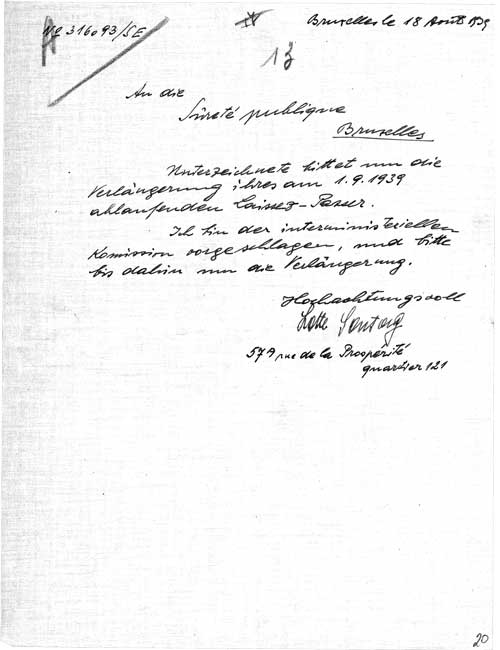 No 316093/SE
Bruxelles le 18 Août 1939
13
An die
Sûreté publique
Bruxelles
Unterzeichnete bittet um die
Verlängerung ihres am 1.9.1939
ablaufenden Laissez-Passer.
Ich bin der interministeriellen
Komission vorgeschlagen, und bitte
bis dahin um die Verlängerung.
Hochachtungsvoll
Lotte Sontag
57A rue de la Prospérité
quartier 121
20